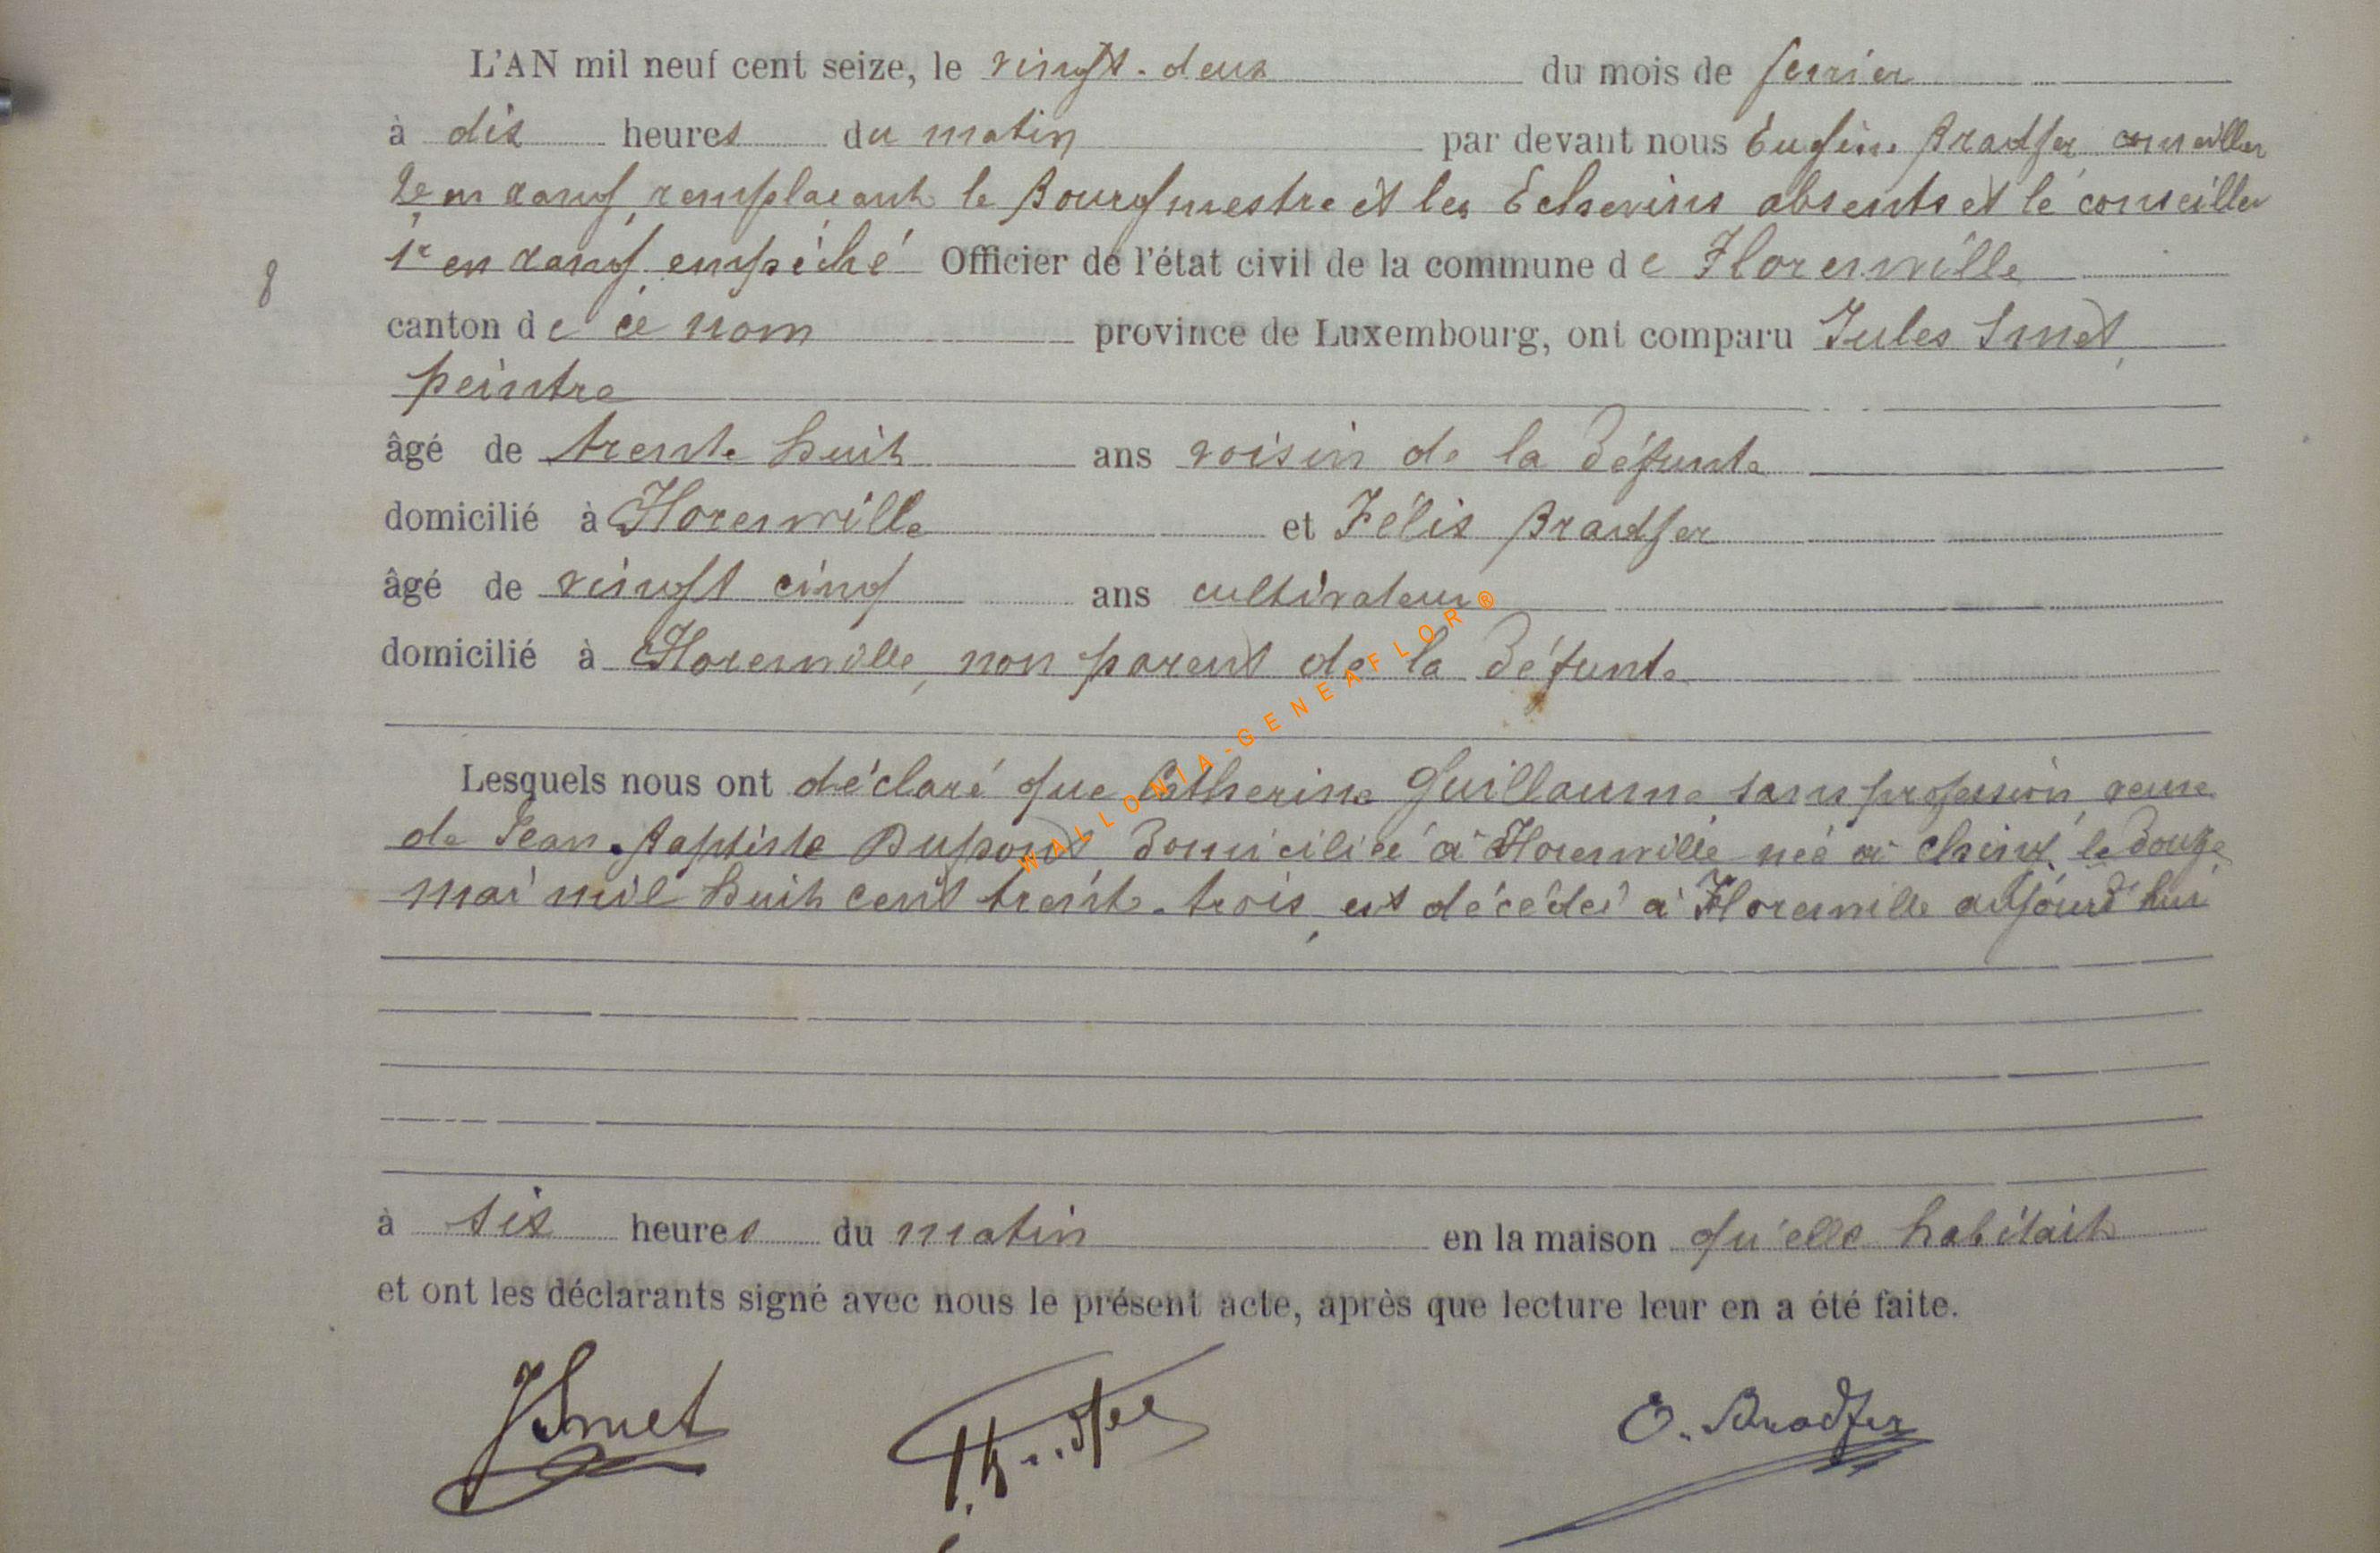 L'AN mil neuf cent seize, le vingt-deux du mois de fevrier
à dix heures du matin par devant nous Eugène Bradfer conseiller
2e en rang, remplaçant le Bourgmestre et les Echevins absents et le conseiller
1r en rang empêché Officier de l'état civil de la commune de Florenville
8
canton de ce nom province de Luxembourg, ont comparu Jules Smet,
peintre
âgé de trente huit ans voisin de la défunte
domicilié à Florenville et Félix Bradfer
âgé de vingt cinq ans cultivateur
domicilié à Florenville, non parent de la défunte
WALLONIA-GENEAFLOR®
Lesquels nous ont déclaré que Catherine Guillaume sans profession, veuve
de Jean-Baptiste Dupont domiciliée à Florenville née à Chiny, le douze
mai mil huit cent trente-trois, est décédée à Florenville aujourd'hui
à six heures du matin en la maison qu'elle habitait
et ont les déclarants signé avec nous le présent acte, après que lecture leur en a été faite.
JSmet E. Bradfer